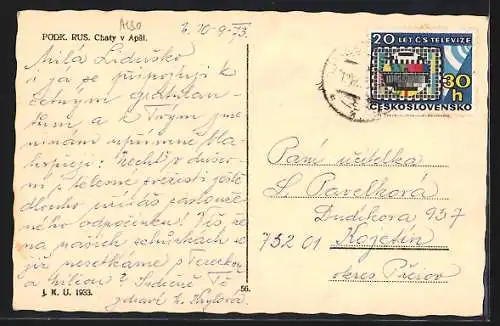 A130
PODK. RUS. Chaty v Apši.
Z. 10-9-73.
Milá Liduško
i já se připojuji k
četným gratulan-
tům a k Tvým jme-
ninám upřímně bla-
hopřeji: Nechť v dušev.
i tělesné svěžesti ještě
dlouho užíváš zaslouže-
ného odpočinku! Těš, že
na našich schůzkách se
již nesetkáme s Terezkou
a Milkou? Srdečně Tě
zdraví
J. K. U. 1933.
56.
20 LET ČS TELEVIZE
30 h
ČESKOSLOVENSKO
Paní učitelka
L. Pavelková
Dudíkova 937
752 01 Kojetín
okres Přerov